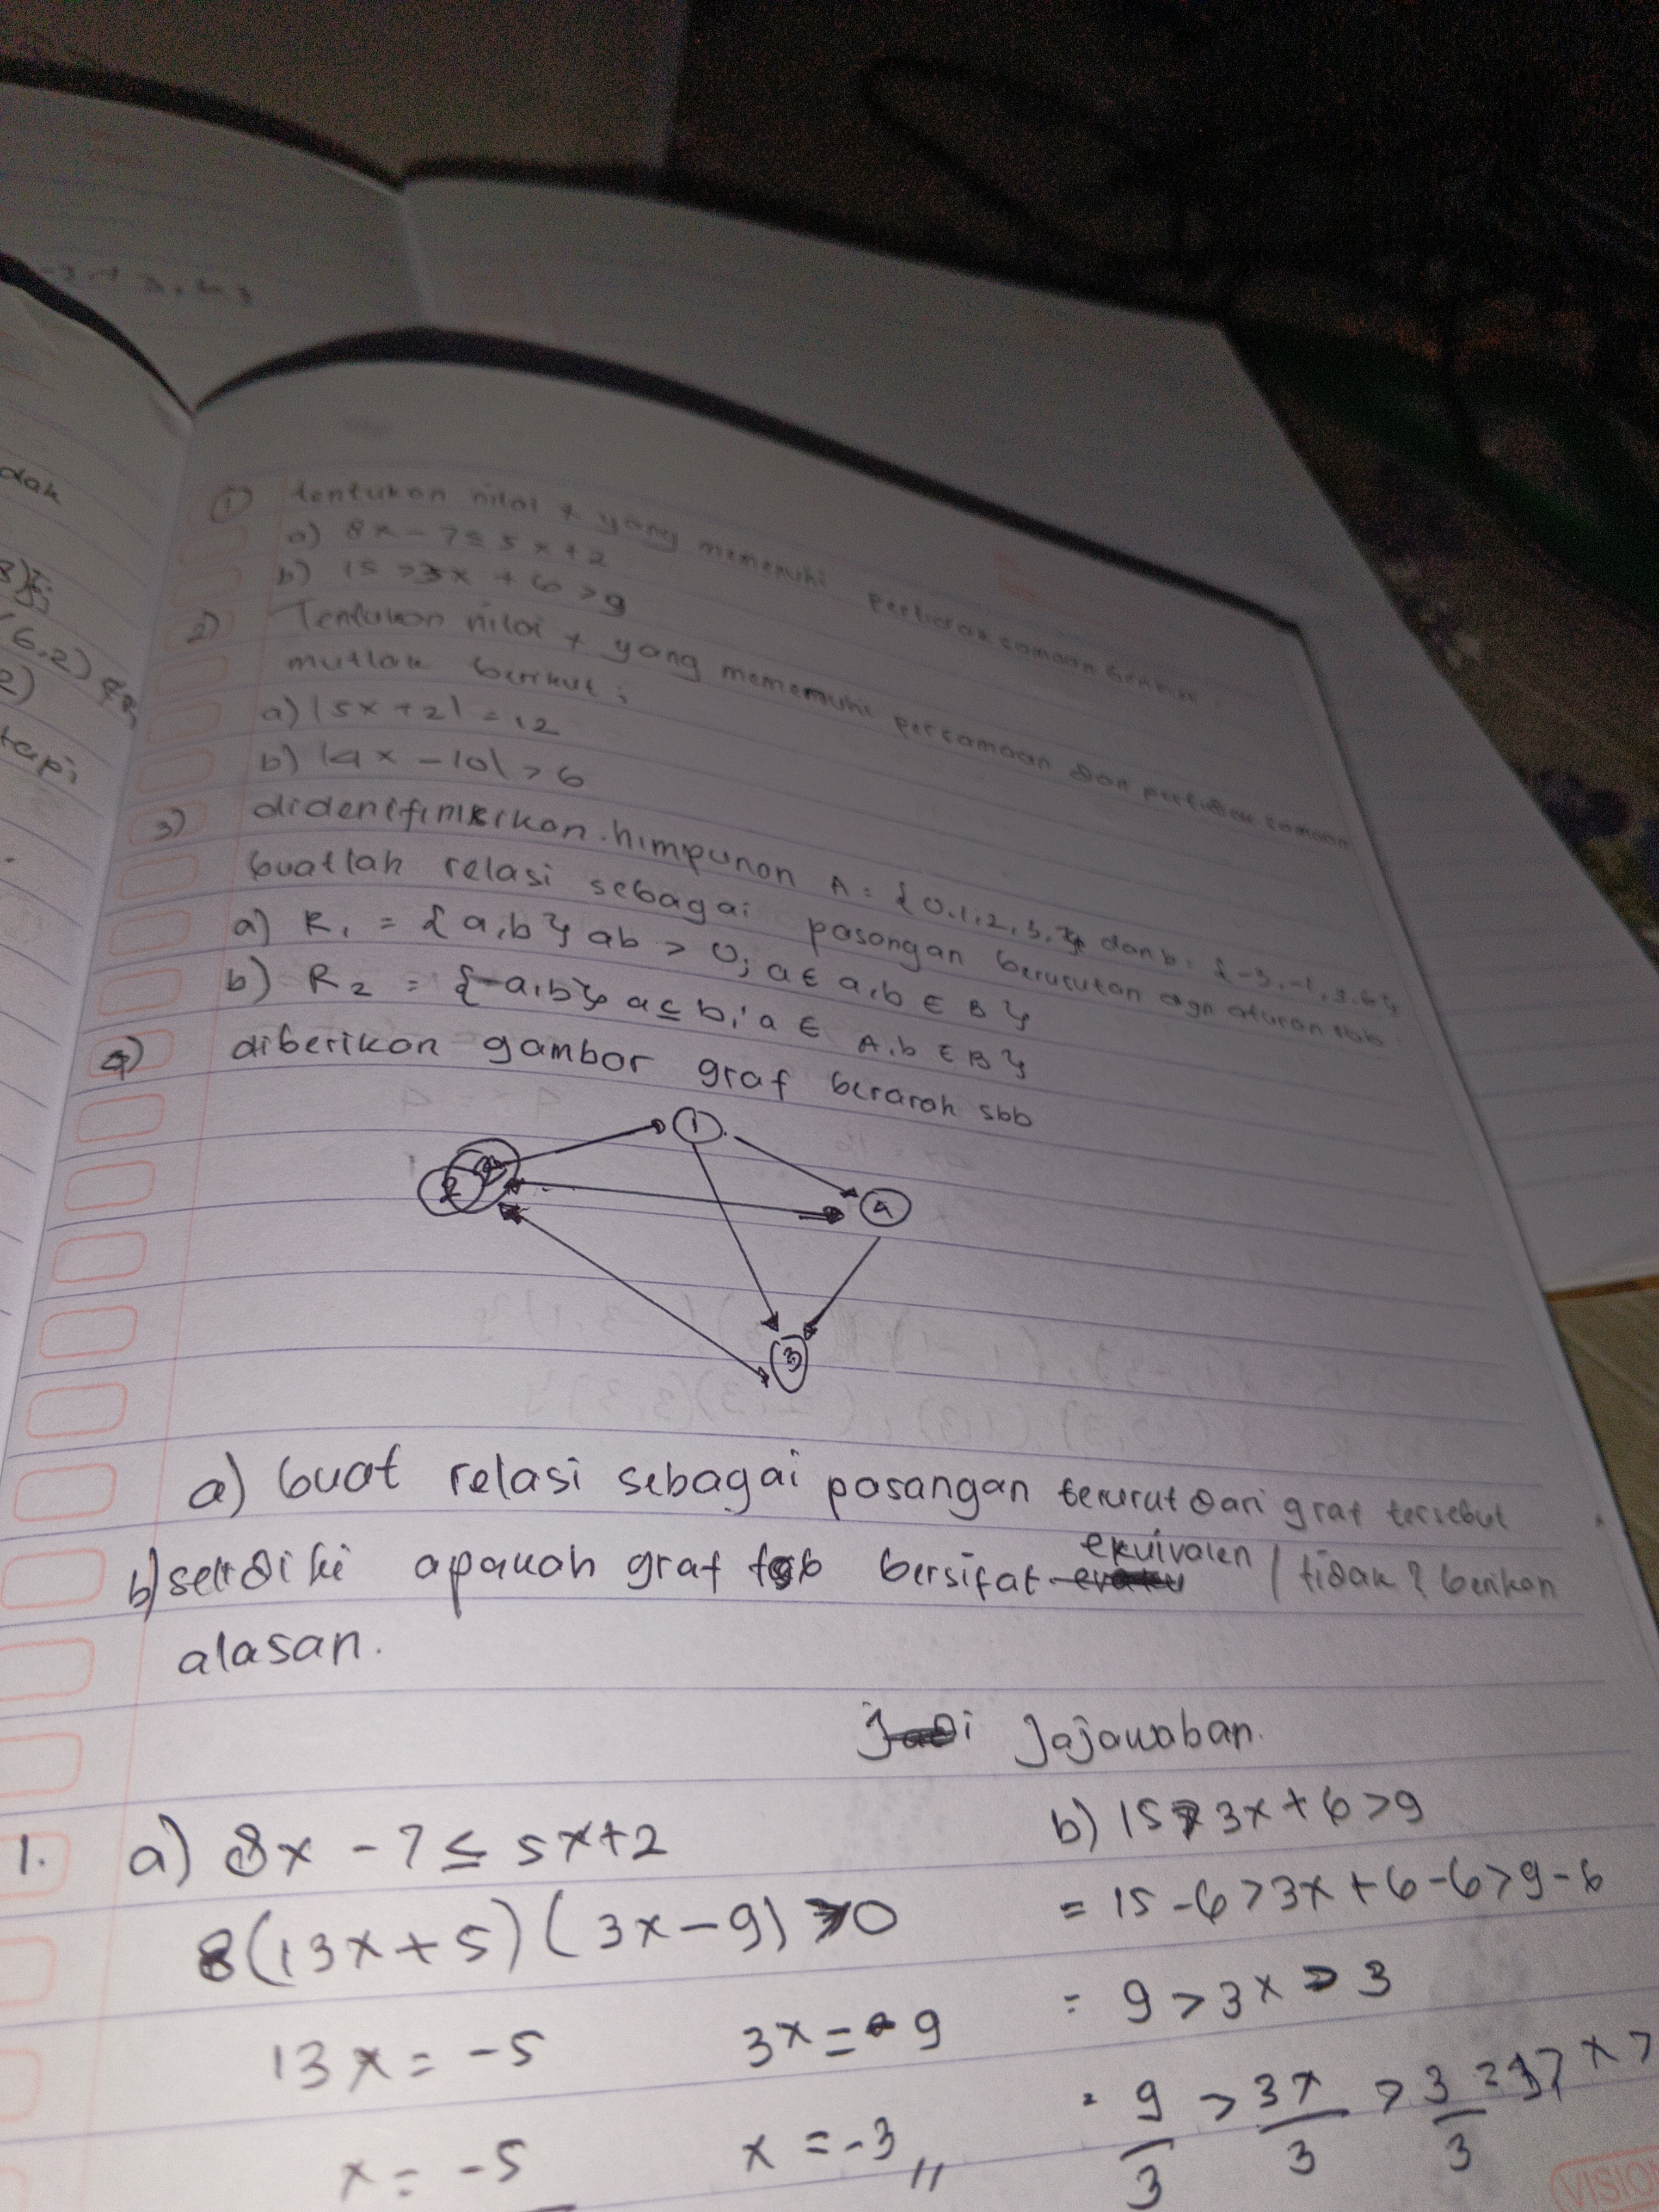 dak
(6,2)
2)
tapi
① tentukan nilai x yang memenuhi pertidaksamaan
a) 8x - 7 ≤ 5x + 2
b) 15 > 3x + 6 > 9
2) Tentukan nilai x yang mememuhi persamaan dan pertidaksamaan
mutlak berikut;
a) |5x + 2| = 12
b) |4x - 10| > 6
3) didenifinisikan himpunan A = {0,1,2,3,4} dan b = {-3,-1,3,6}
buatlah relasi sebagai pasangan berurutan dgn aturan sbb
a) R₁ = {a,b} ab > 0; a ∈ a,b ∈ B}
b) R₂ = {a,b} a ≤ b; a ∈ A,b ∈ B}
4) diberikan gambar graf berarah sbb
1
2
4
3
a) buat relasi sebagai pasangan terurut dari graf tersebut
b) selidiki apakah graf tsb bersifat ekuivalen / tidak? berikan
alasan.
Jajawaban.
1. a) 8x - 7 ≤ 5x+2
b) 15 > 3x+6 > 9
8(13x+5)(3x-9) >0
= 15-6 > 3x+6-6 > 9-6
13x = -5
3x = -9
= 9 > 3x > 3
x = -5
x = -3 //
= 9/3 > 3x/3 > 3/3
VISION